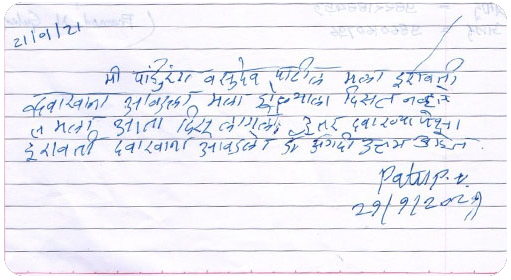 21/01/21
मी पांडुरंग वसुदेव पाटील मला इरावती
दवाखाना आवडला मला डोळ्याला दिसत नव्हते
मला आता दिसू लागले. इतर दवाखान्या पेक्षा
इरावती दवाखाना आवडला डॉ अगदी उत्तम आहेत.
Patil P. V.